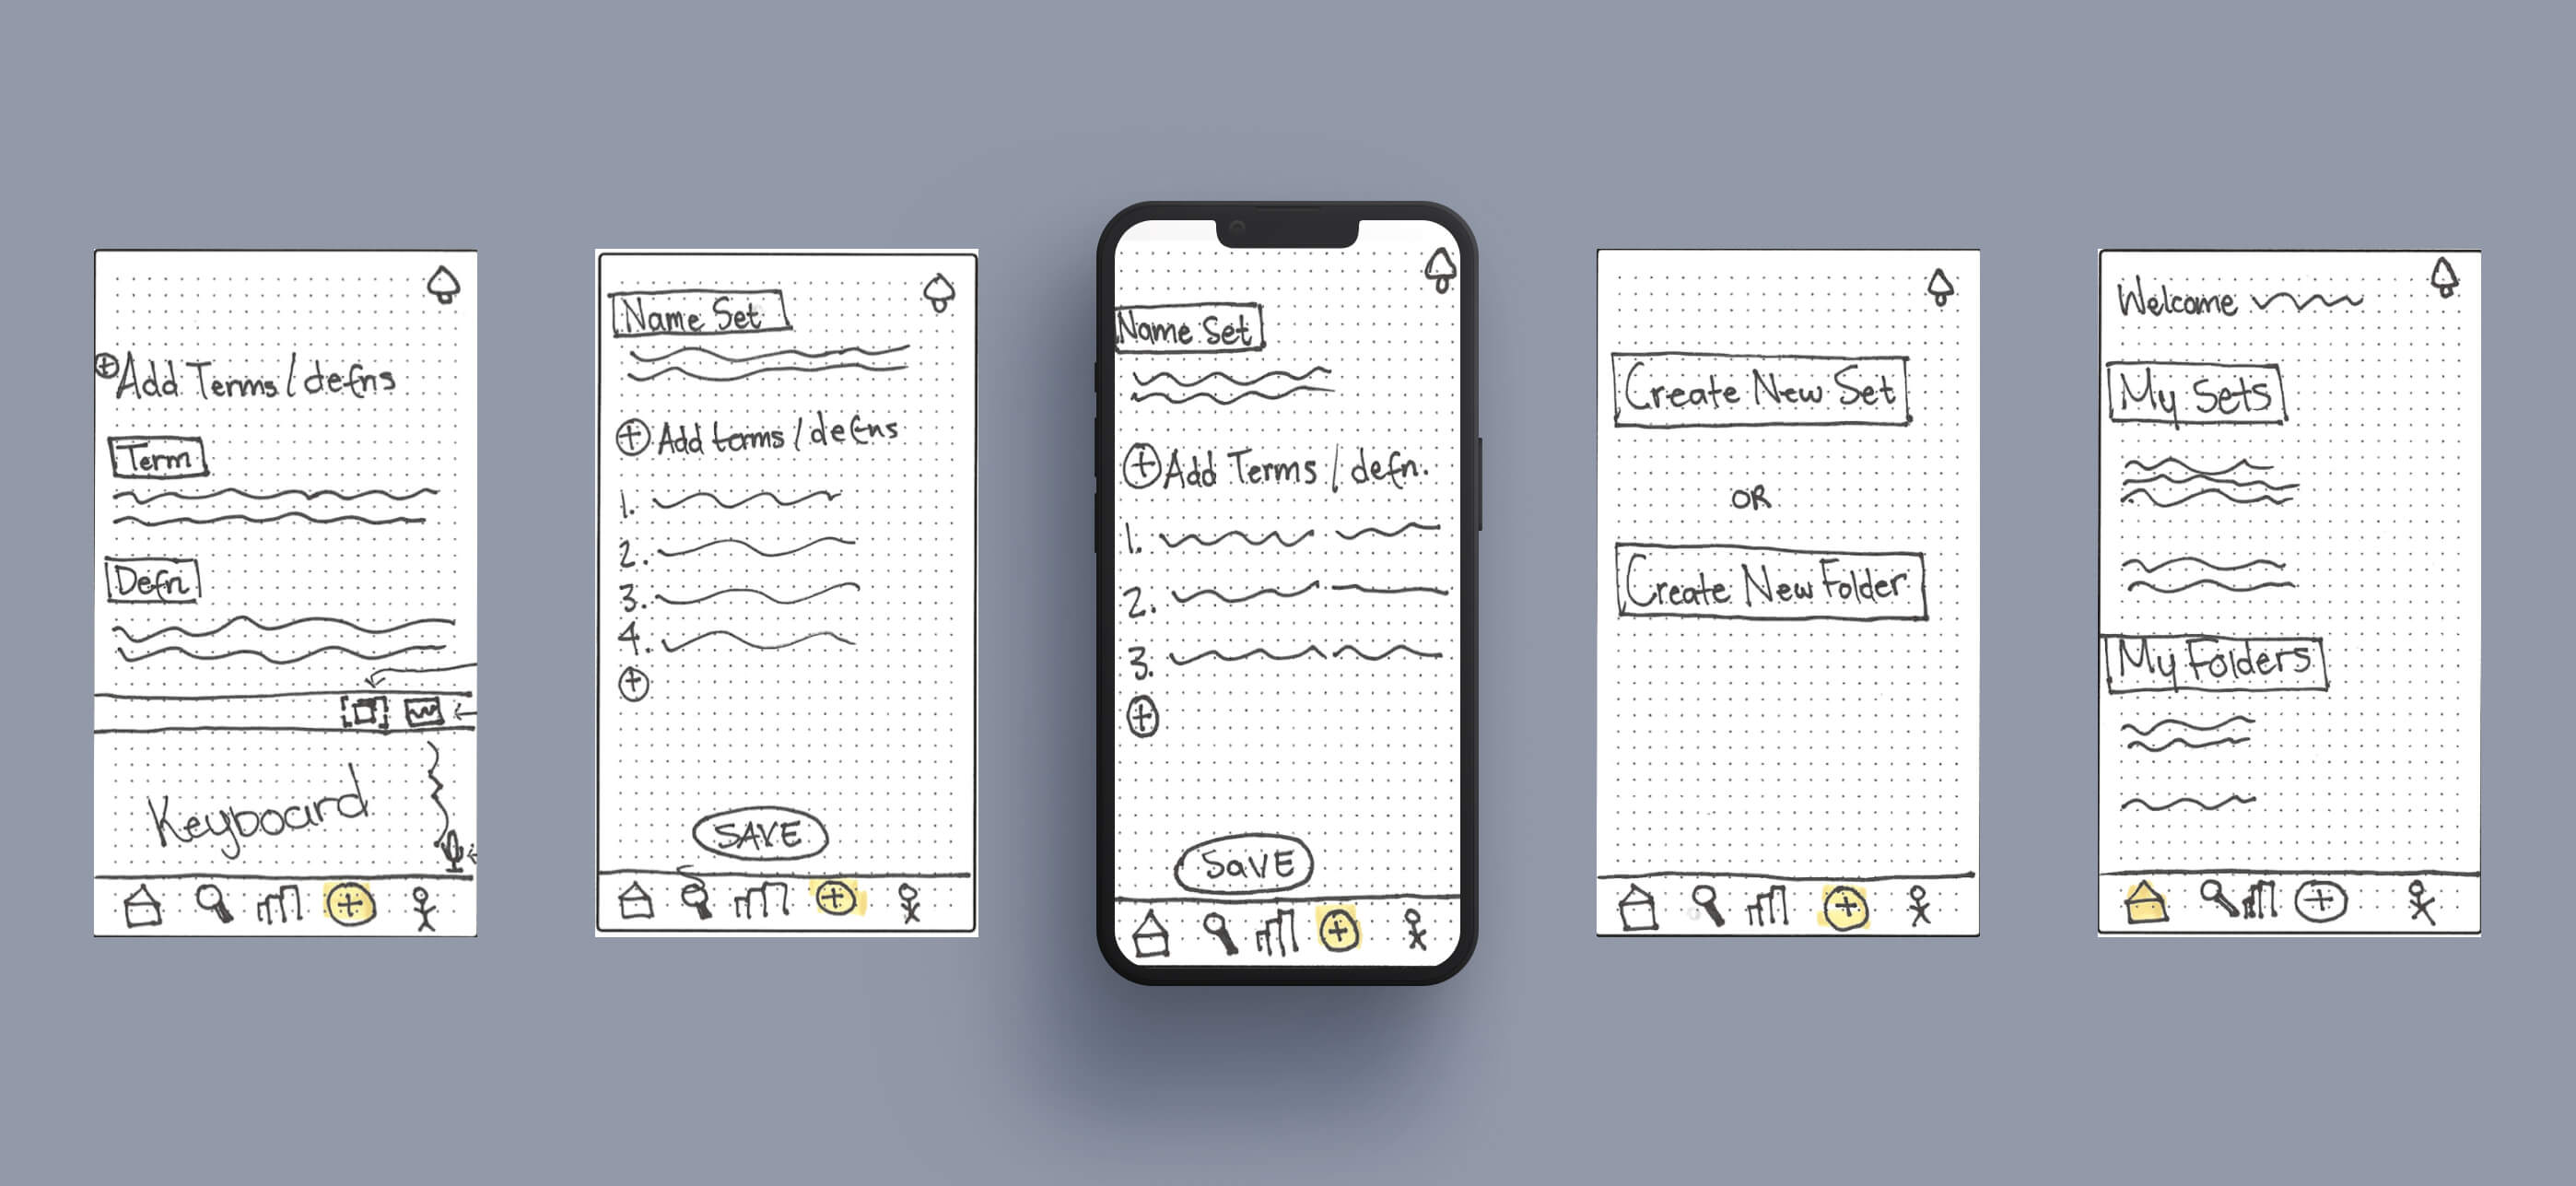 Add Terms / defns
Term
Defn
Keyboard
Name Set
Add terms / defns
1.
2.
3.
4.
SAVE
Name Set
Add Terms / defn.
1.
2.
3.
SaVE
Create New Set
OR
Create New Folder
Welcome
My Sets
My Folders